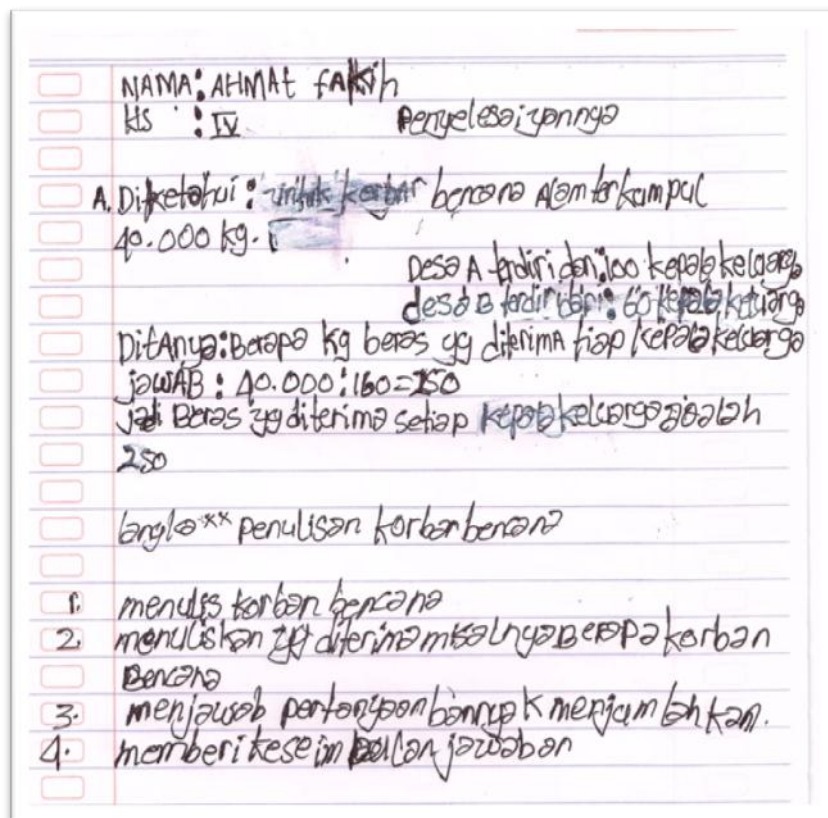 NAMA : AHMAt fAkih
kls : IV Penyelesaiyannya
A. Diketahui : untuk korban bencana Alam terkumpul
40.000 kg.
Desa A terdiri dari : 100 kepala keluarga
desa B terdiri dari : 60 kepala keluarga
DitAnya : Berapa kg beras yg diterimA tiap kepala keluarga
jawAB : 40.000 : 160 = 250
jadi Beras yg diterima setiap kepala keluarga adalah
250
langka ** penulisan korban bencana
1. menulis korban bencana
2. menuliskan yg diterima misalnya Berapa korban
Bencana
3. menjawab pertanyaan bannyak menjumlahkan.
4. memberi keseimpulan jawaban